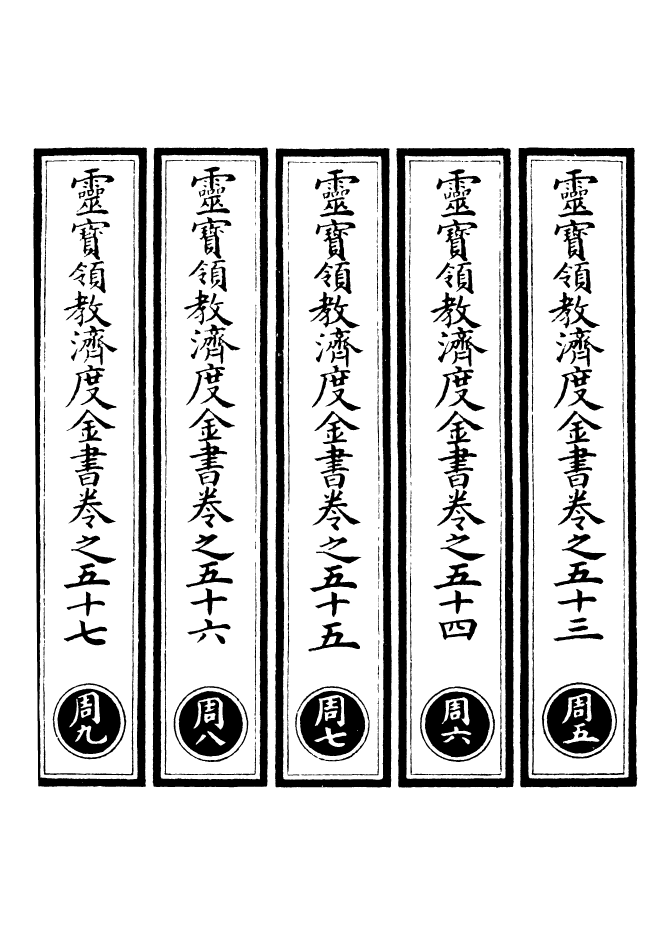 靈寶領教濟度金書卷之五十三
周五
靈寶領教濟度金書卷之五十四
周六
靈寶領教濟度金書卷之五十五
周七
靈寶領教濟度金書卷之五十六
周八
靈寶領教濟度金書卷之五十七
周九